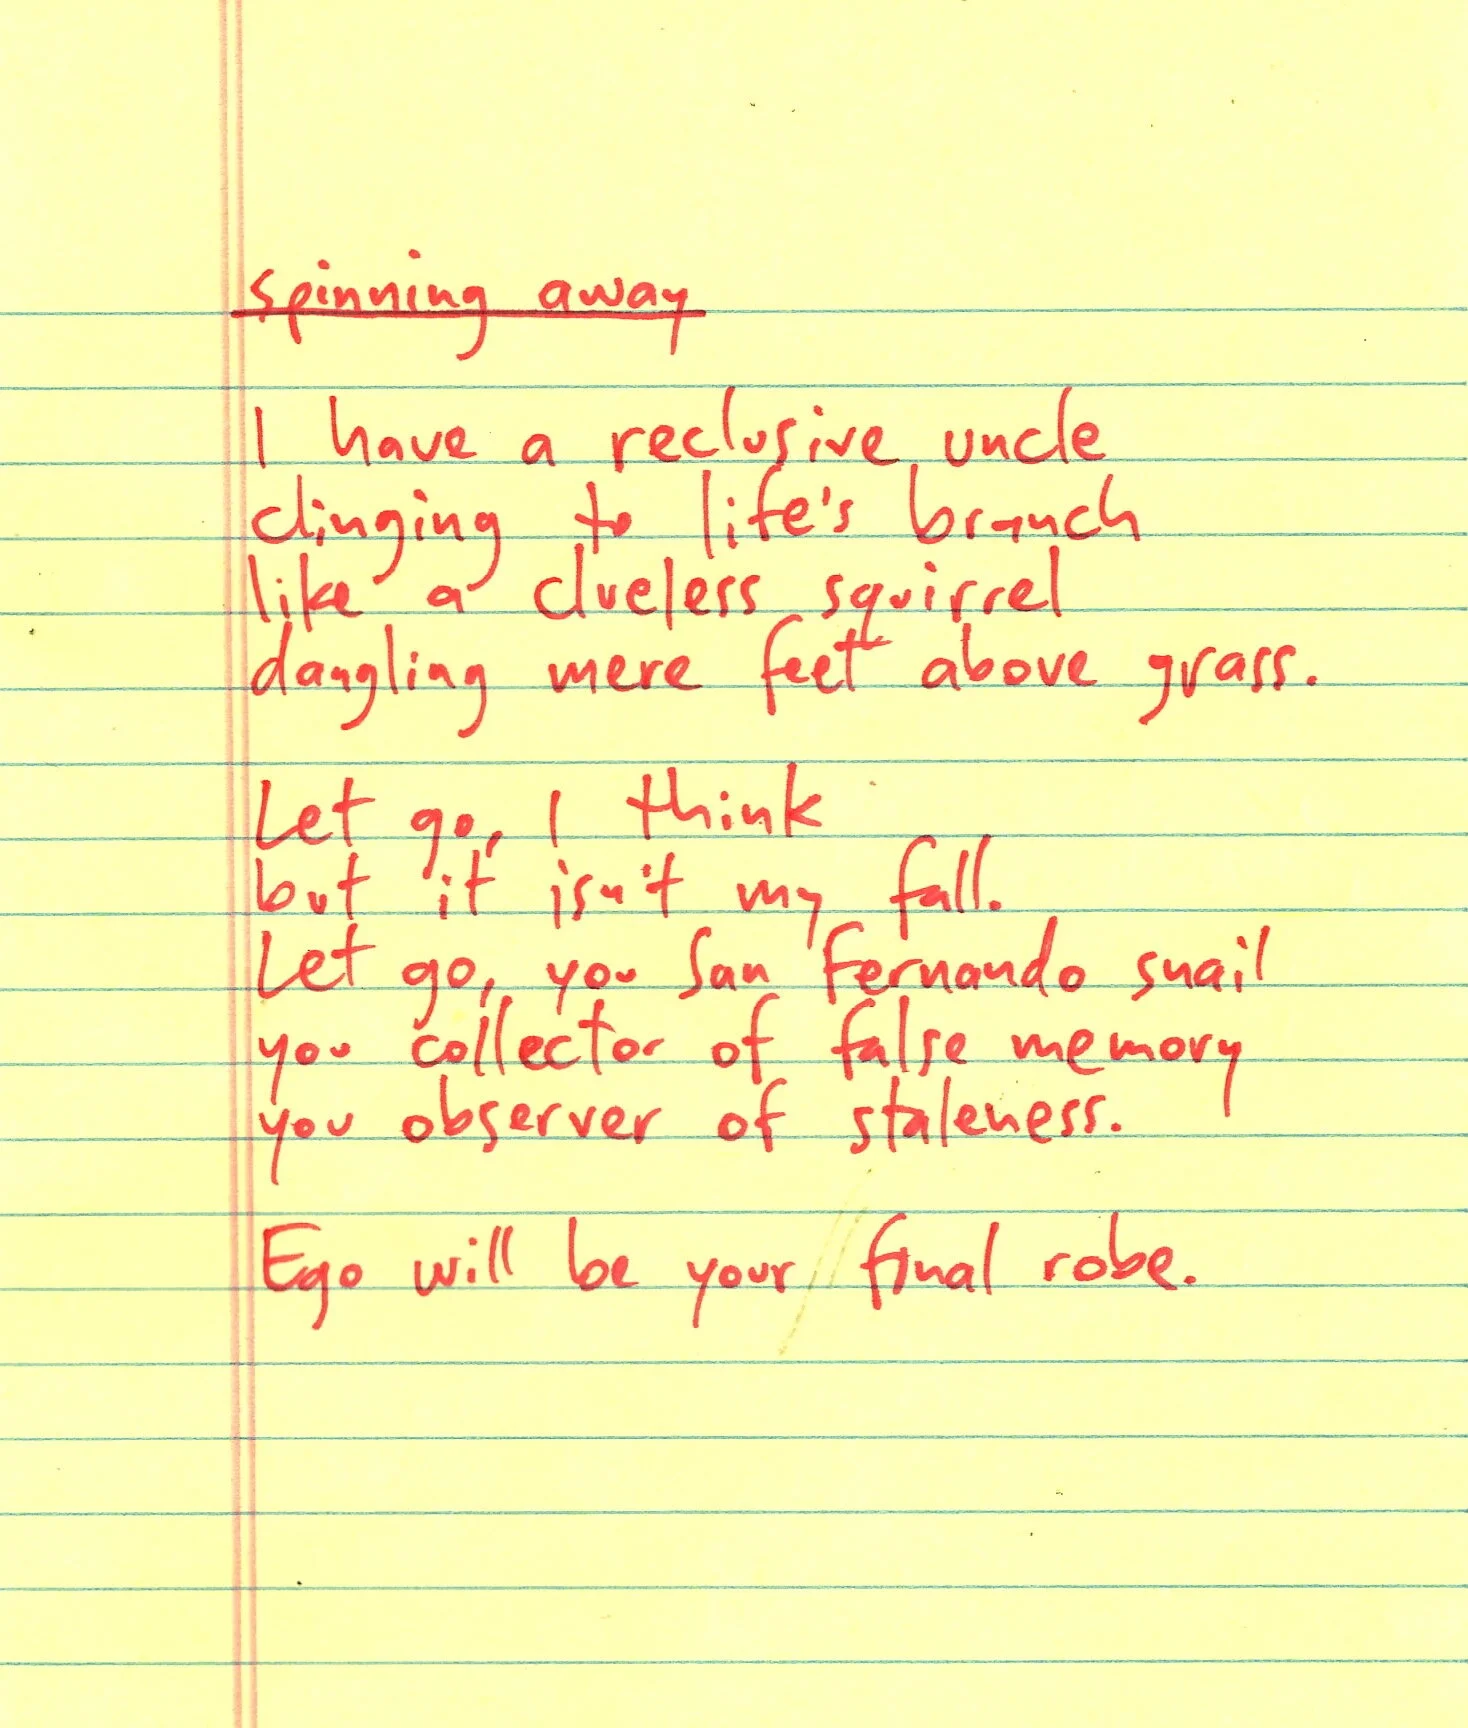 spinning away
I have a reclusive uncle
clinging to life's branch
like a clueless squirrel
dangling mere feet above grass.
Let go, I think
but it isn't my fall.
Let go, you San Fernando snail
you collector of false memory
you observer of staleness.
Ego will be your final robe.